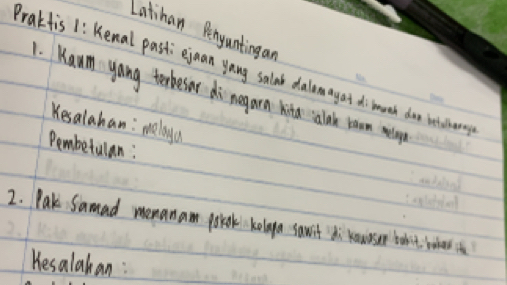 Latihan Penyuntingan
Praktis 1: Kenal pasti ejaan yang salah dalam ayat di bawah dan betulkannya
1. Kaum yang terbesar di negara kita ialah kaum melayu.
Kesalahan: melayu
Pembetulan:
2. Pak Samad menanam pokok kelapa sawit di kawasan bukit-bukau itu
Kesalahan: